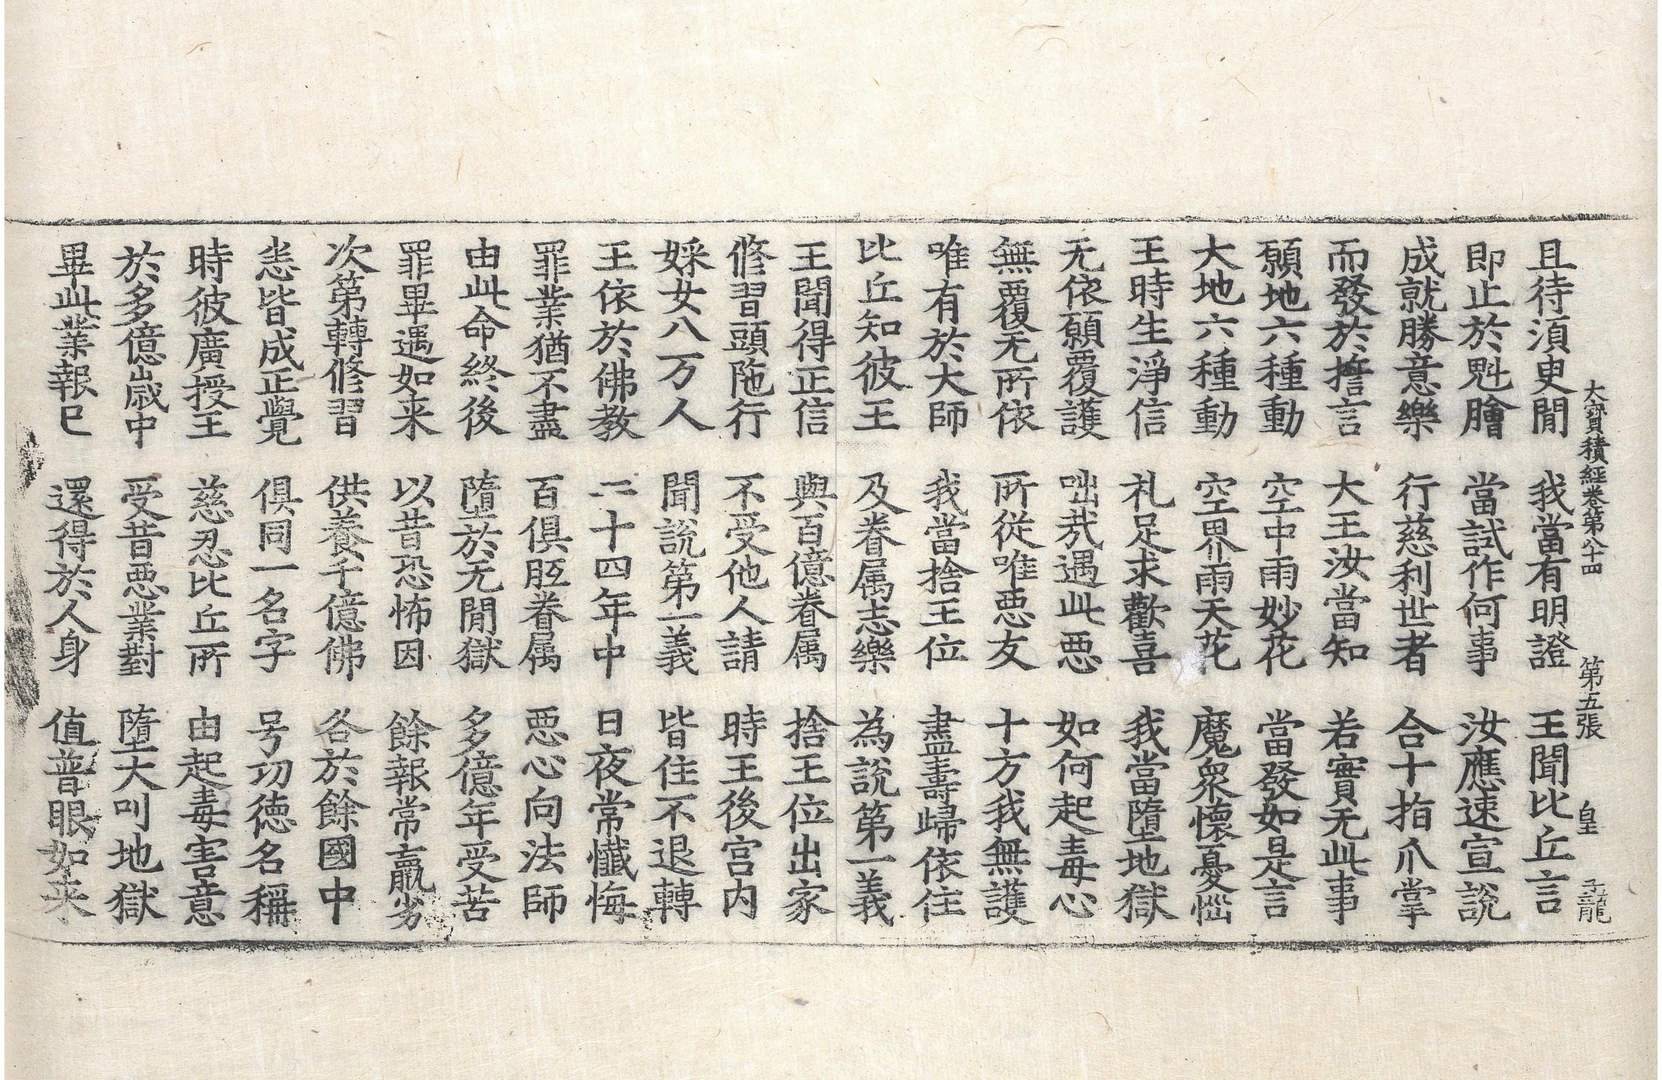 大寶積經卷第八十四 第五張 皇 子龍
且待須臾閒 我當有明證 王聞比丘言
即止於魁膾 當試作何事 汝應速宣說
成就勝意樂 行慈利世者 合十指爪掌
而發於誓言 大王汝當知 若實无此事
願地六種動 空中雨妙花 當發如是言
大地六種動 空界雨天花 魔衆懷憂惱
王時生淨信 礼足求歡喜 我當墮地獄
无依願覆護 咄哉遇此惡 如何起毒心
無覆无所依 所從唯惡友 十方我無護
唯有於大師 我當捨王位 盡壽歸依住
比丘知彼王 及眷属志樂 為說第一義
王聞得正信 與百億眷属 捨王位出家
修習頭陁行 不受他人請 時王後宫内
婇女八万人 聞說第一義 皆住不退轉
王依於佛教 二十四年中 日夜常懺悔
罪業猶不盡 百俱胝眷属 惡心向法師
由此命終後 墮於无閒獄 多億年受苦
罪畢遇如来 以昔恐怖因 餘報常羸劣
次第轉修習 供養千億佛 各於餘國中
悉皆成正覺 俱同一名字 号功德名稱
時彼廣授王 慈忍比丘所 由起毒害意
於多億歲中 受昔惡業對 墮大叫地獄
畢此業報已 還得於人身 值普眼如来